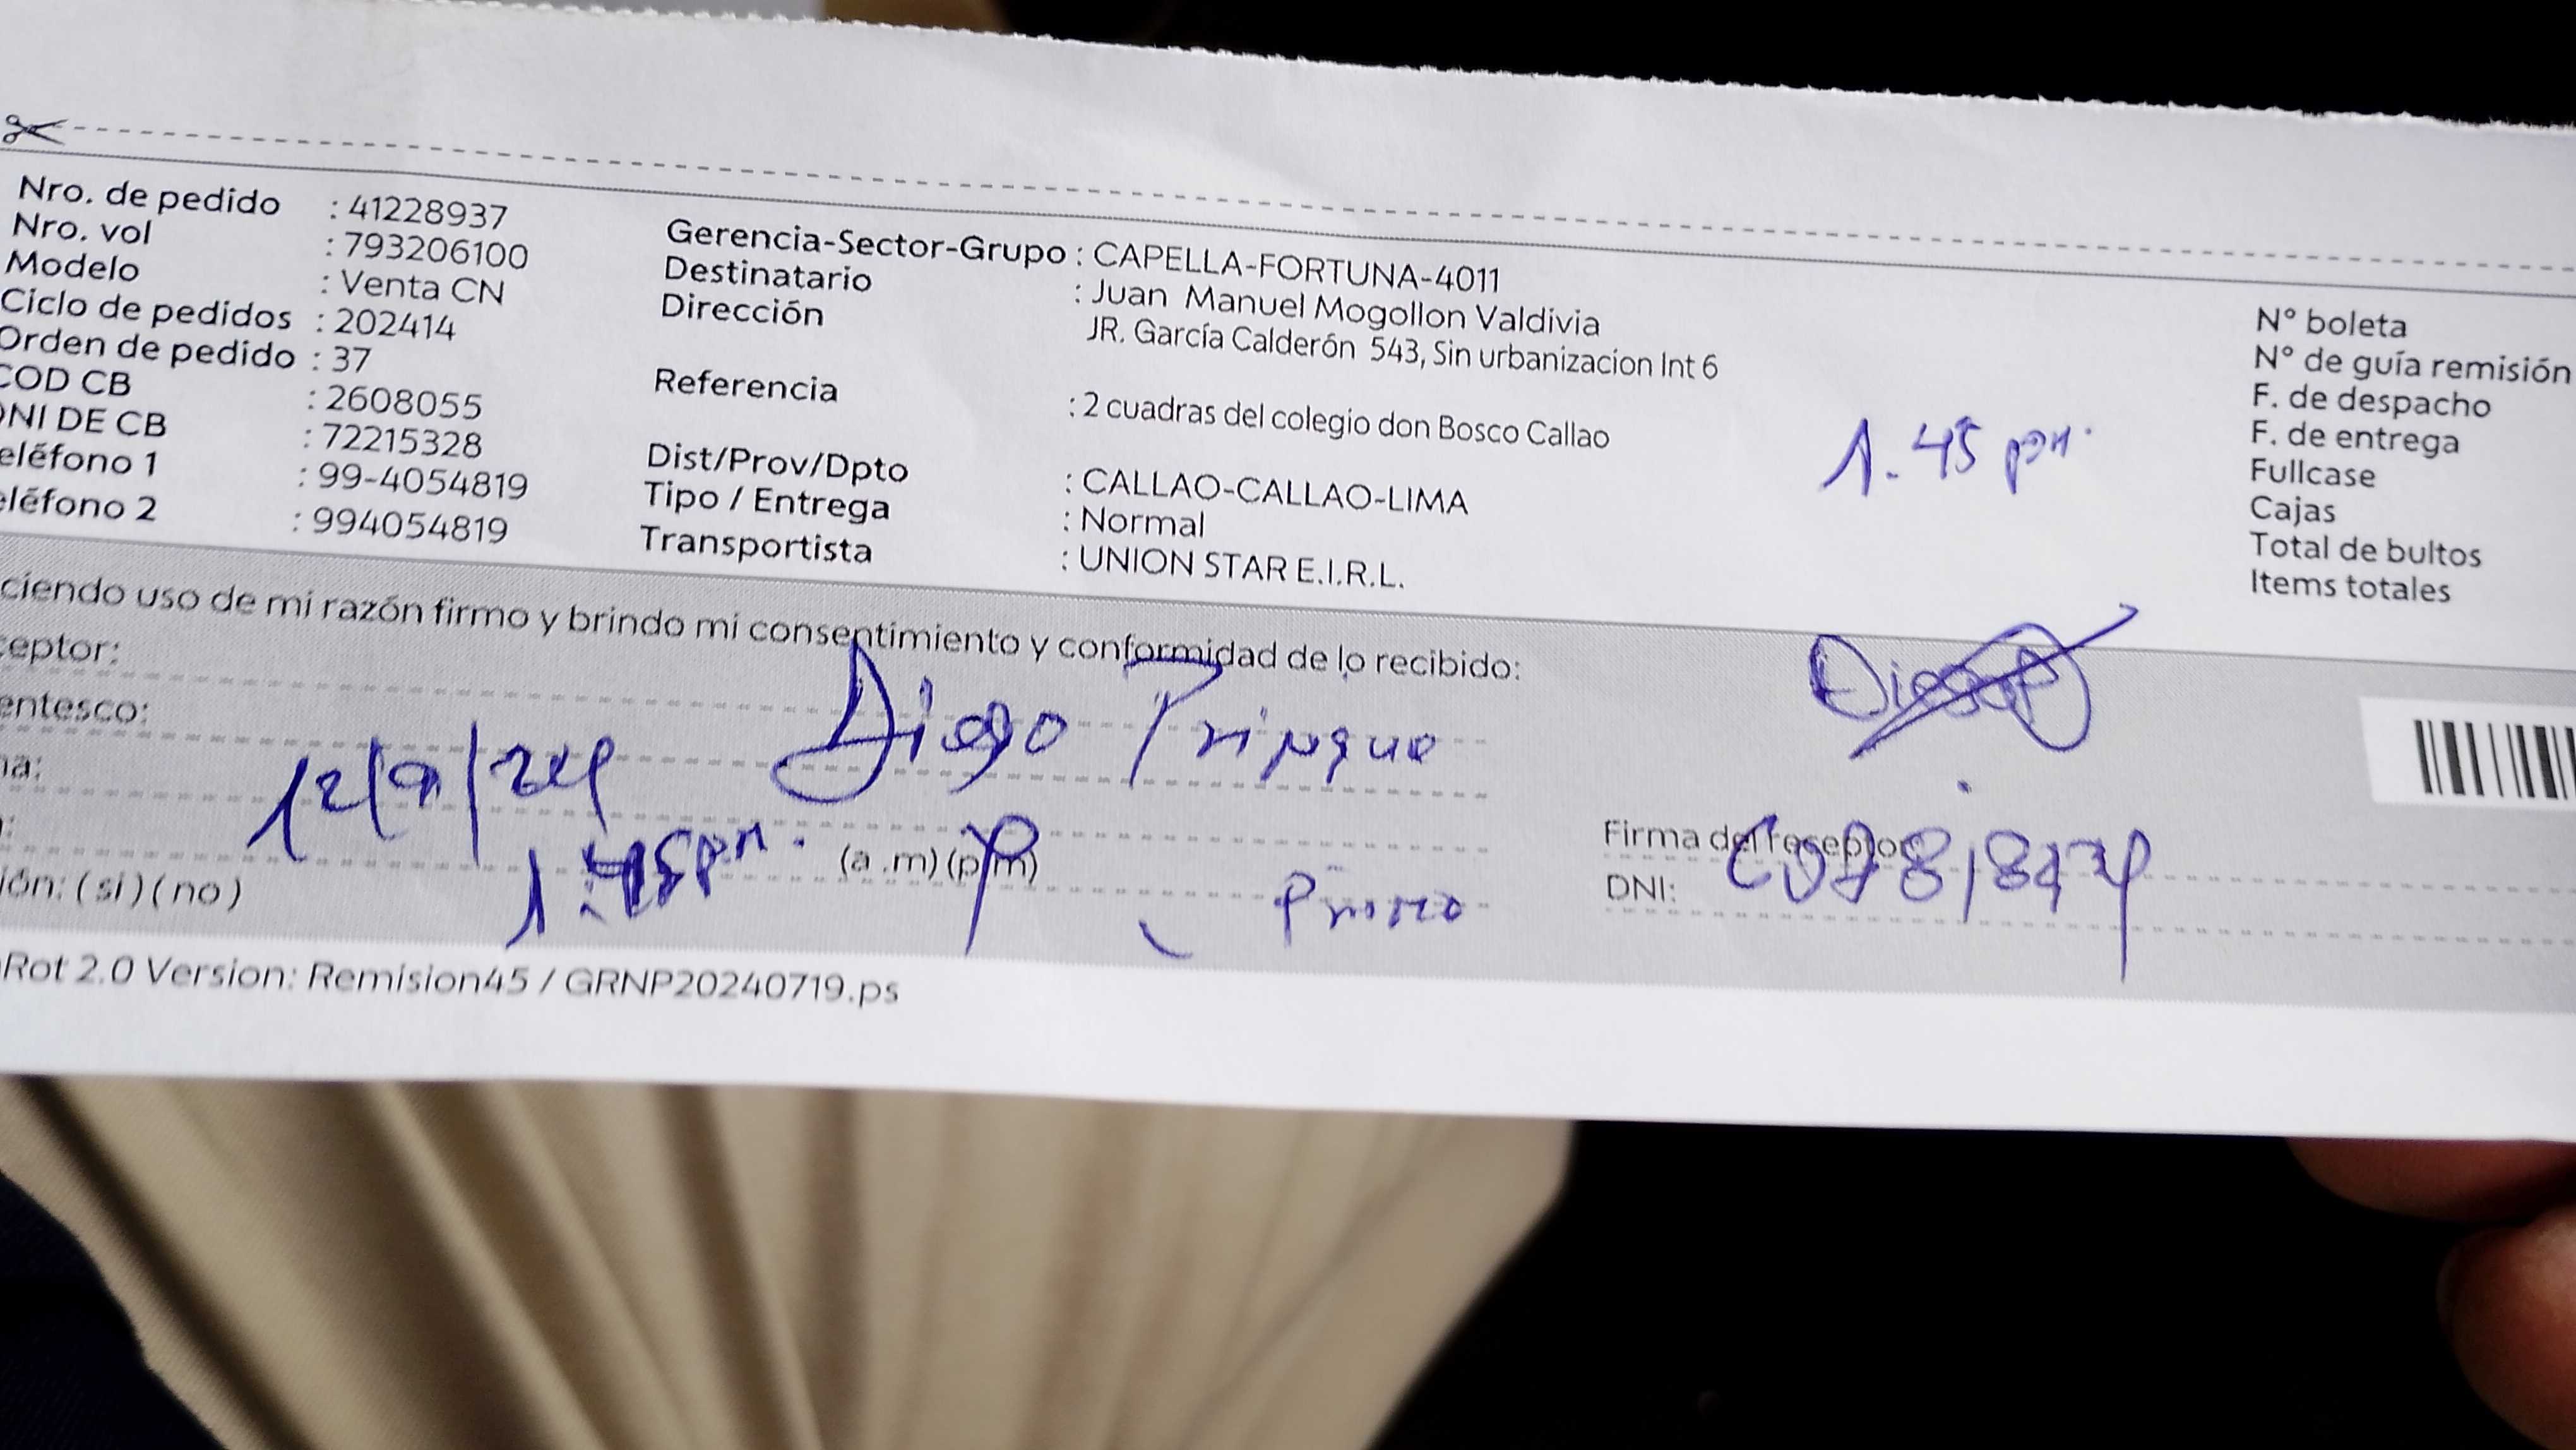 Nro. de pedido : 41228937
Nro. vol : 793206100
Modelo : Venta CN
Ciclo de pedidos : 202414
Orden de pedido : 37
COD CB : 2608055
DNI DE CB : 72215328
eléfono 1 : 99-4054819
eléfono 2 : 994054819
Gerencia-Sector-Grupo : CAPELLA-FORTUNA-4011
Destinatario : Juan Manuel Mogollon Valdivia
Dirección JR. García Calderón 543, Sin urbanizacion Int 6
Referencia : 2 cuadras del colegio don Bosco Callao
Dist/Prov/Dpto : CALLAO-CALLAO-LIMA
Tipo / Entrega : Normal
Transportista : UNION STAR E.I.R.L.
1.45 pm.
N° boleta
N° de guía remisión
F. de despacho
F. de entrega
Fullcase
Cajas
Total de bultos
Items totales
ciendo uso de mi razón firmo y brindo mi consentimiento y conformidad de lo recibido:
ceptor:
Diego
entesco:
na:
12/9/24
1:45pm.
(a .m) (p.m)
ión: ( si ) ( no )
Primo
Firma del receptor
DNI:
Rot 2.0 Version: Remision45 / GRNP20240719.ps